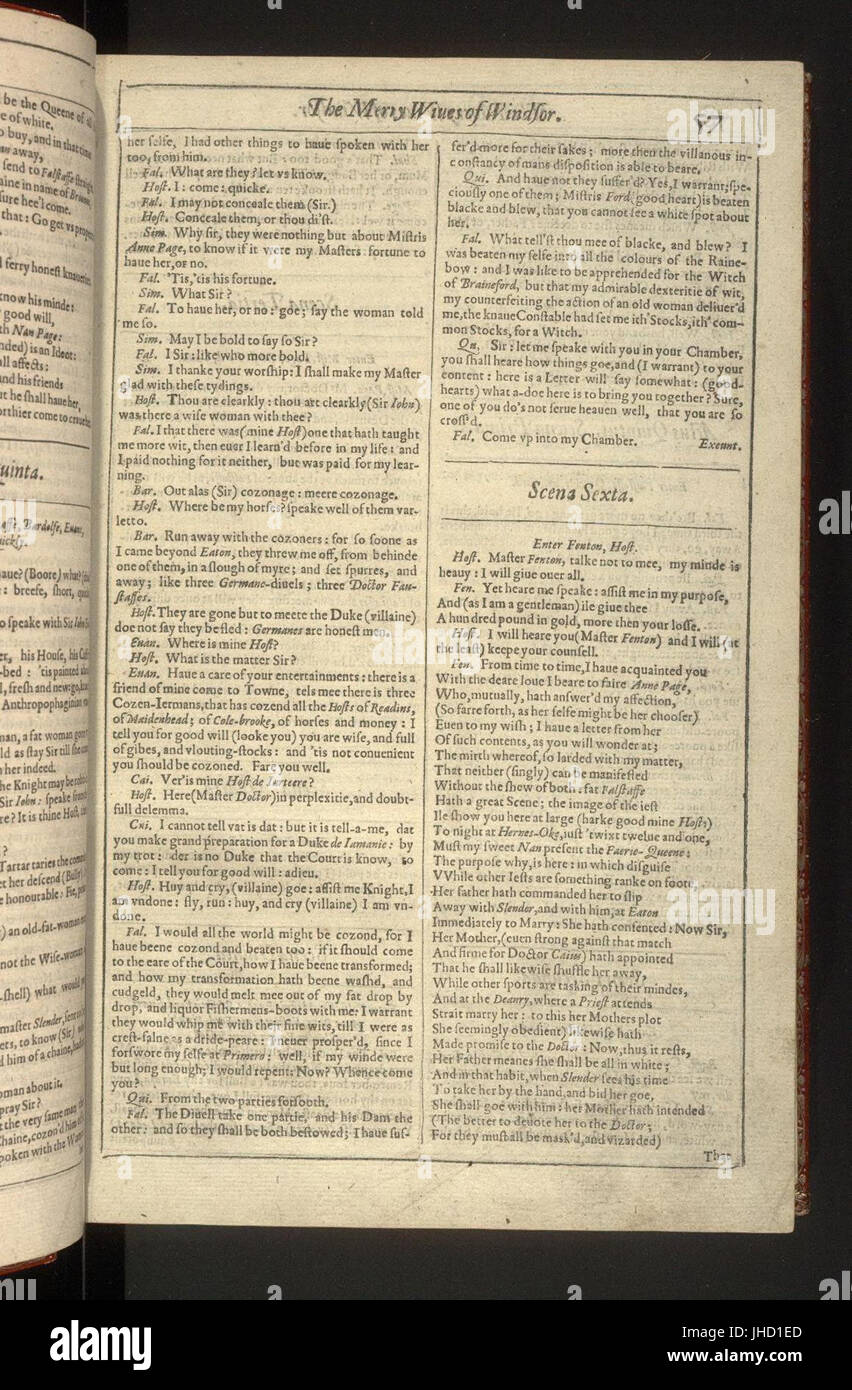 be the Queene of all
of white.
buy, and in that time
away,
send to Falstaffe straight
in name of Broome,
sure hee'l come.
that: Go get vs
ferry honest knaueries.
know his minde:
good will,
Nan Page:
is an Ideot:
all affects:
and his friends
he shall haue her,
worthier come to craue her
uinta.
Bardolfe, Euans,
haue? (Boore) what?
: breefe, short, quick
to speake with Sir Iohn
his House, his
bed: 'tis painted
fresh and new: go,
Anthropophaginian
man, a fat woman gone
as stay Sir till she come
her indeed.
the Knight may be robb'd
Sir Iohn: speake from
Is it thine Host,
?
Tartar taries the comming
let her descend (Bully)
honourable: Fie,
) an old-fat-woman euen
not the Wise-woman
-shell) what would you
master Slender, sent to
to know (Sir)
him of a chaine, had
woman about it.
pray Sir?
the very same man
Chaine, cozon'd him of
spoken with the Woman
The Merry Wiues of Windsor.
57
her selfe, I had other things to haue spoken with her
too, from him.
Fal. What are they? let vs know.
Host. I: come: quicke.
Fal. I may not conceale them (Sir.)
Host. Conceale them, or thou di'st.
Sim. Why sir, they were nothing but about Mistris
Anne Page, to know if it were my Masters fortune to
haue her, or no.
Fal. 'Tis, 'tis his fortune.
Sim. What Sir?
Fal. To haue her, or no: goe; say the woman told
me so.
Sim. May I be bold to say so Sir?
Fal. I Sir: like who more bold.
Sim. I thanke your worship: I shall make my Master
glad with these tydings.
Host. Thou are clearkly: thou art clearkly (Sir Iohn)
was there a wise woman with thee?
Fal. I that there was (mine Host) one that hath taught
me more wit, then euer I learn'd before in my life: and
I paid nothing for it neither, but was paid for my lear-
ning.
Bar. Out alas (Sir) cozonage: meere cozonage.
Host. Where be my horses? speake well of them var-
letto.
Bar. Run away with the cozoners: for so soone as
I came beyond Eaton, they threw me off, from behinde
one of them, in a slough of myre; and set spurres, and
away; like three Germane-diuels; three Doctor Fau-
stasses.
Host. They are gone but to meete the Duke (villaine)
doe not say they be fled: Germanes are honest men.
Euan. Where is mine Host?
Host. What is the matter Sir?
Euan. Haue a care of your entertainments: there is a
friend of mine come to Towne, tels mee there is three
Cozen-Iermans, that has cozend all the Hosts of Readins,
of Maidenhead; of Cole-brooke, of horses and money: I
tell you for good will (looke you) you are wise, and full
of gibes, and vlouting-stocks: and 'tis not conuenient
you should be cozoned. Fare you well.
Cai. Ver'is mine Host de Iarteere?
Host. Here (Master Doctor) in perplexitie, and doubt-
full delemma.
Cai. I cannot tell vat is dat: but it is tell-a-me, dat
you make grand preparation for a Duke de Iamanie: by
my trot: der is no Duke that the Court is know, to
come: I tell you for good will: adieu.
Host. Huy and cry, (villaine) goe: assist me Knight, I
am vndone: fly, run: huy, and cry (villaine) I am vn-
done.
Fal. I would all the world might be cozond, for I
haue beene cozond and beaten too: if it should come
to the eare of the Court, how I haue beene transformed;
and how my transformation hath beene washd, and
cudgeld, they would melt mee out of my fat drop by
drop, and liquor Fishermens-boots with me: I warrant
they would whip me with their fine wits, till I were as
crest-falne as a dride-peare: I neuer prosper'd, since I
forswore my selfe at Primero: well, if my winde were
but long enough; I would repent: Now? Whence come
you?
Qui. From the two parties forsooth.
Fal. The Diuell take one partie, and his Dam the
other: and so they shall be both bestowed; I haue suf-
fer'd more for their sakes; more then the villanous in-
constancy of mans disposition is able to beare.
Qui. And haue not they suffer'd? Yes, I warrant; spe-
ciously one of them; Mistris Ford (good heart) is beaten
blacke and blew, that you cannot see a white spot about
her.
Fal. What tell'st thou mee of blacke, and blew? I
was beaten my selfe into all the colours of the Raine-
bow: and I was like to be apprehended for the Witch
of Braineford, but that my admirable dexteritie of wit,
my counterfeiting the action of an old woman deliuer'd
me, the knaue Constable had set me ith'Stocks, ith' com-
mon Stocks, for a Witch.
Qu. Sir: let me speake with you in your Chamber,
you shall heare how things goe, and (I warrant) to your
content: here is a Letter will say somewhat: (good-
hearts) what a-doe here is to bring you together? Sure,
one of you do's not serue heauen well, that you are so
cross'd.
Fal. Come vp into my Chamber.
Exeunt.
Scena Sexta.
Enter Fenton, Host.
Host. Master Fenton, talke not to mee, my minde is
heauy: I will giue ouer all.
Fen. Yet heare me speake: assist me in my purpose,
And (as I am a gentleman) ile giue thee
A hundred pound in gold, more then your losse.
Host. I will heare you (Master Fenton) and I will (at
the least) keepe your counsell.
Fen. From time to time, I haue acquainted you
With the deare loue I beare to faire Anne Page,
Who, mutually, hath answer'd my affection,
(So farre forth, as her selfe might be her chooser)
Euen to my wish; I haue a letter from her
Of such contents, as you will wonder at;
The mirth whereof, so larded with my matter,
That neither (singly) can be manifested
Without the shew of both: fat Falstaffe
Hath a great Scene; the image of the iest
Ile show you here at large (harke good mine Host:)
To night at Hernes-Oke, iust 'twixt twelue and one,
Must my sweet Nan present the Faerie-Queene:
The purpose why, is here: in which disguise
VVhile other Iests are something ranke on foote,
Her father hath commanded her to slip
Away with Slender, and with him, at Eaton
Immediately to Marry: She hath consented: Now Sir,
Her Mother, (euen strong against that match
And firme for Doctor Caius) hath appointed
That he shall likewise shuffle her away,
While other sports are tasking of their mindes,
And at the Deanry, where a Priest attends
Strait marry her: to this her Mothers plot
She seemingly obedient) likewise hath
Made promise to the Doctor: Now, thus it rests,
Her Father meanes she shall be all in white;
And in that habit, when Slender sees his time
To take her by the hand, and bid her goe,
She shall goe with him: her Mother hath intended
(The better to deuote her to the Doctor;
For they must all be mask'd, and vizarded)
That
alamy
Image ID: JHD1ED
www.alamy.com